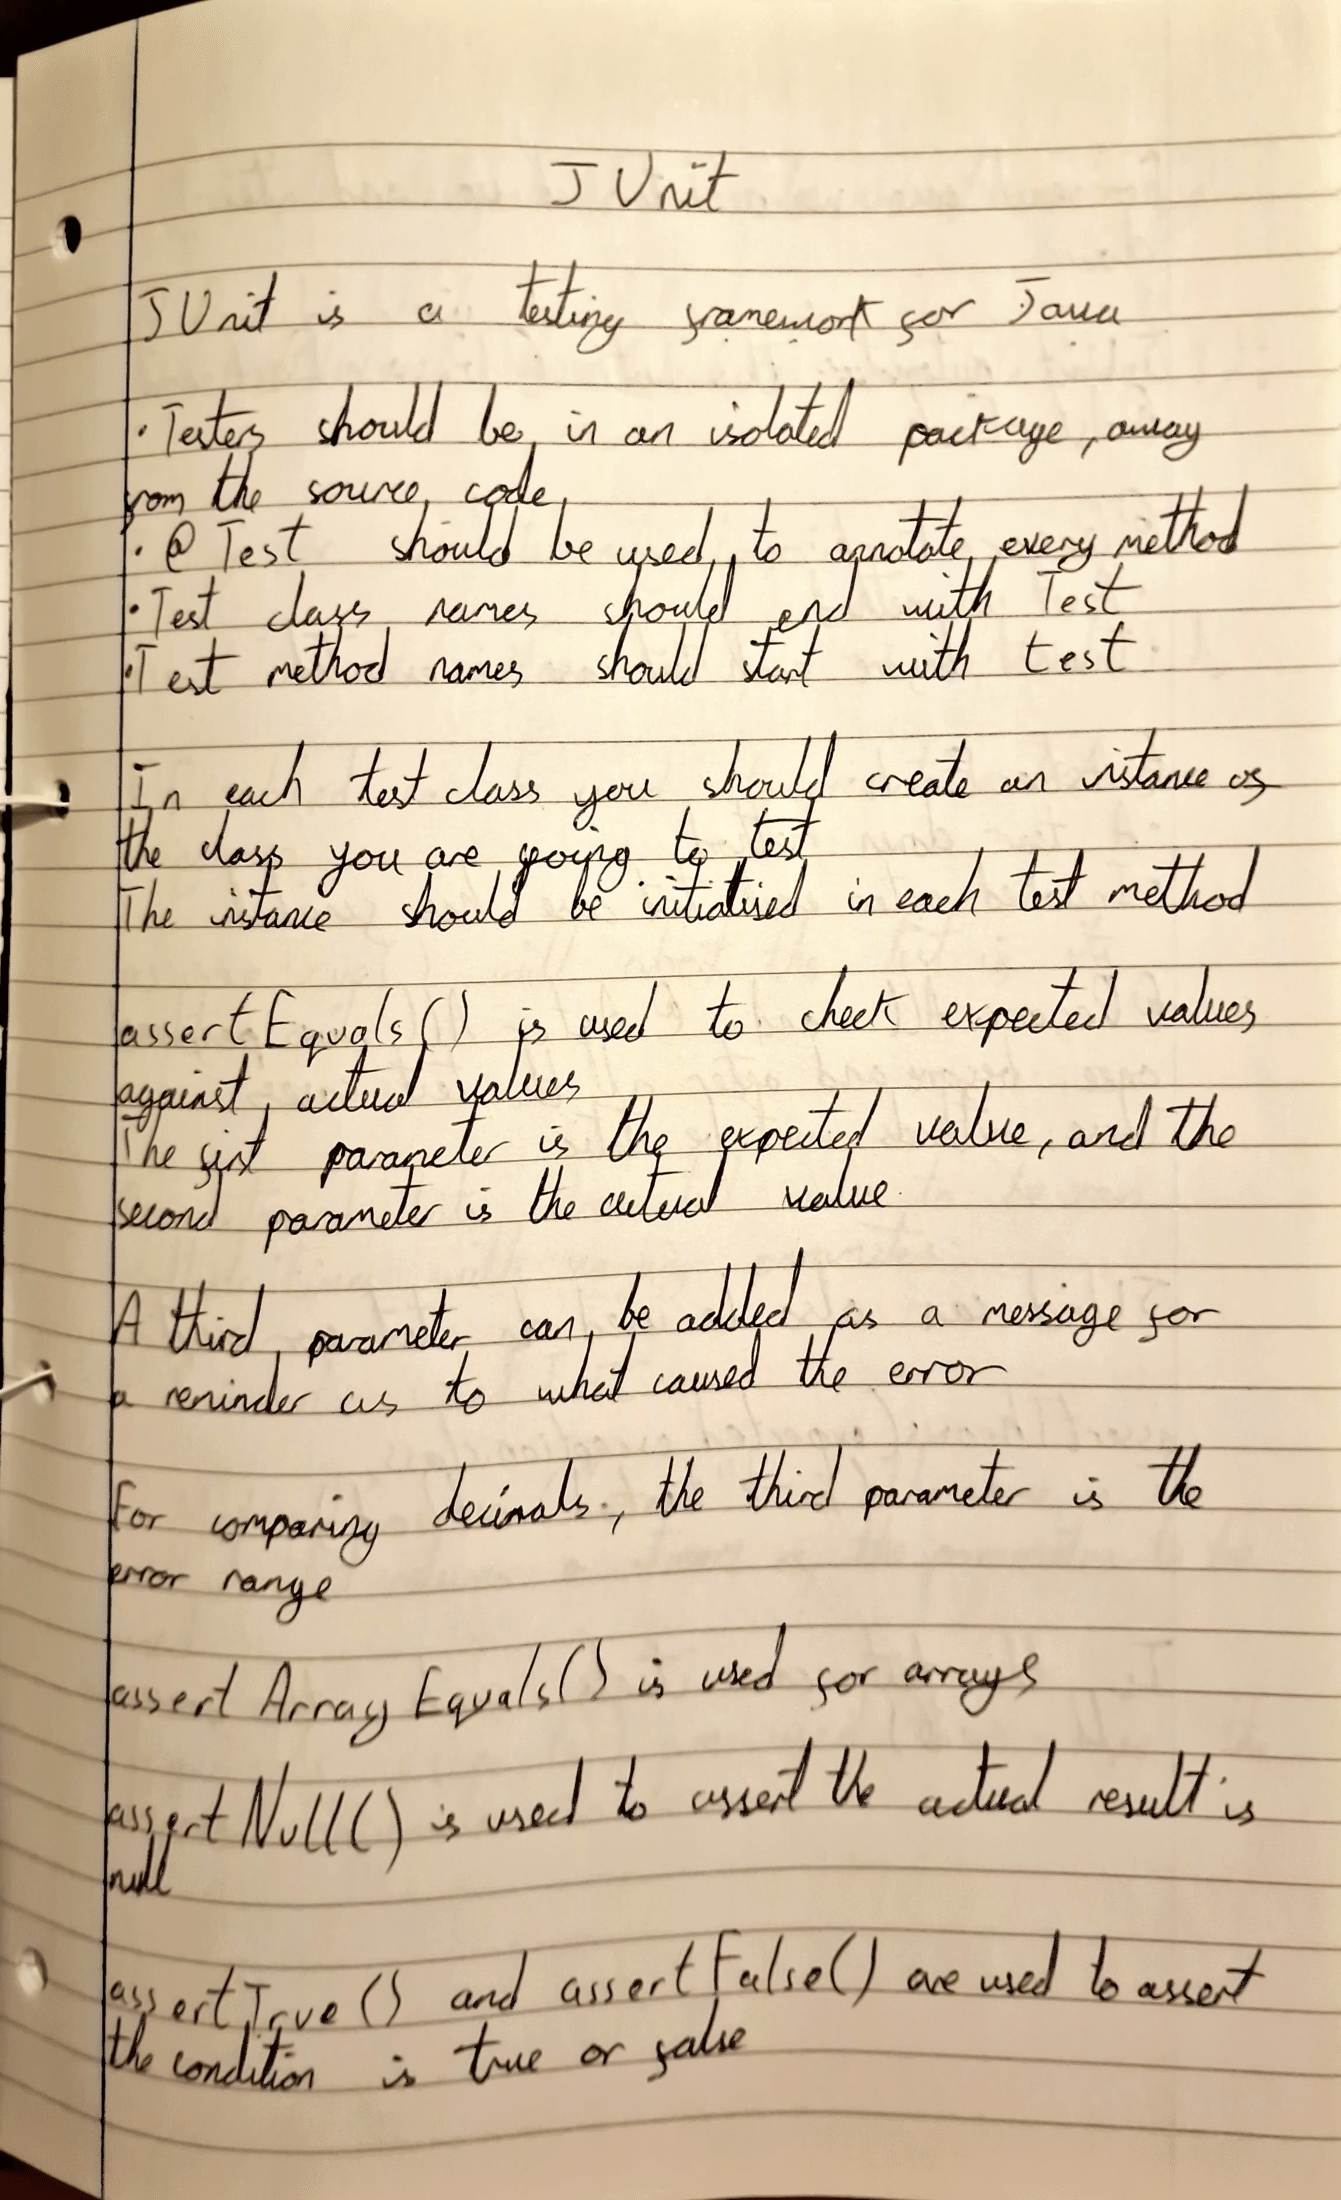 JUnit
JUnit is a testing framework for Java
• Testers should be in an isolated package, away
from the source code
• @Test should be used to annotate every method
• Test class names should end with Test
• Test method names should start with test
In each test class you should create an instance of
the class you are going to test
The instance should be initialised in each test method
assertEquals() is used to check expected values
against actual values
The first parameter is the expected value, and the
second parameter is the actual value.
A third parameter can be added as a message for
a reminder as to what caused the error
For comparing decimals, the third parameter is the
error range
assertArrayEquals() is used for arrays
assertNull() is used to assert the actual result is
null
assertTrue() and assertFalse() are used to assert
the condition is true or false